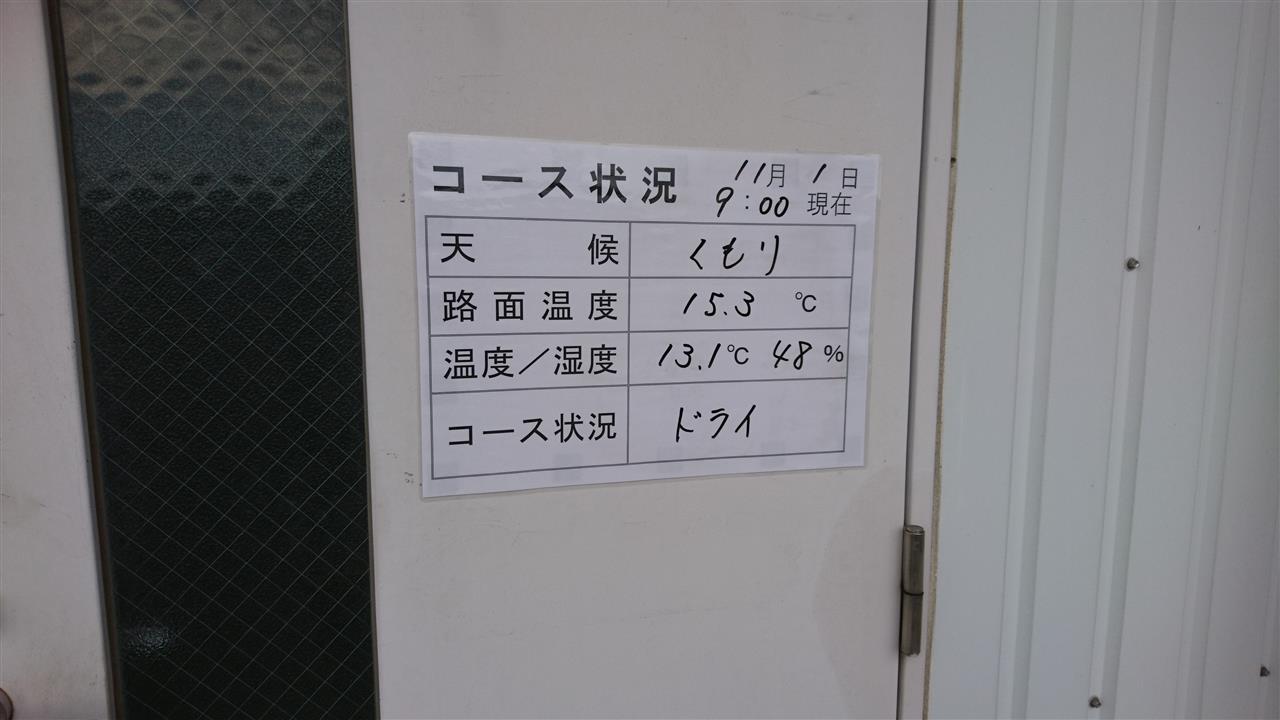 コース状況 11月 1日
9:00 現在
天候 くもり
路面温度 15.3 ℃
温度/湿度 13.1℃ 48%
コース状況 ドライ